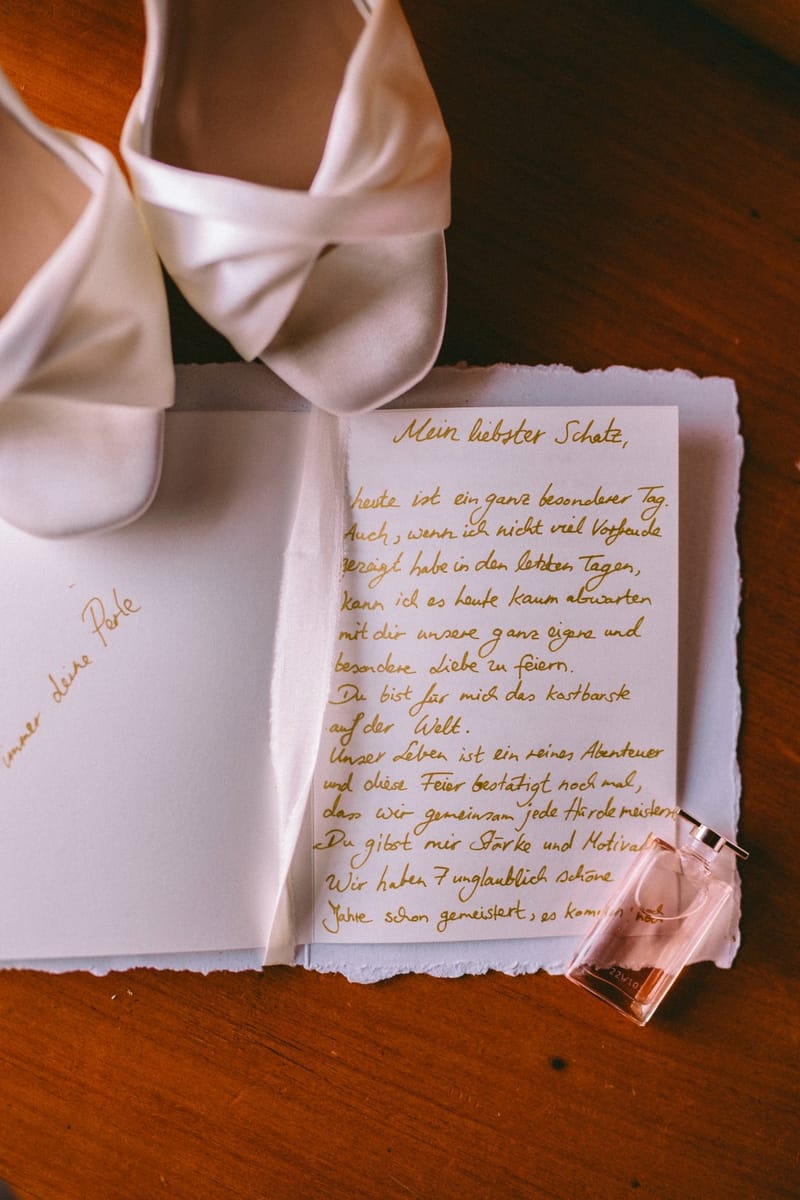 immer deine Perle
Mein liebster Schatz,
heute ist ein ganz besonderer Tag.
Auch, wenn ich nicht viel Vorfreude
gezeigt habe in den letzten Tagen,
kann ich es heute kaum abwarten
mit dir unsere ganz eigene und
besondere Liebe zu feiern.
Du bist für mich das kostbarste
auf der Welt.
Unser Leben ist ein reines Abenteuer
und diese Feier bestätigt noch mal,
dass wir gemeinsam jede Hürde meistern.
Du gibst mir Stärke und
Wir haben 7 unglaublich schöne
Jahre schon gemeistert, es kommen